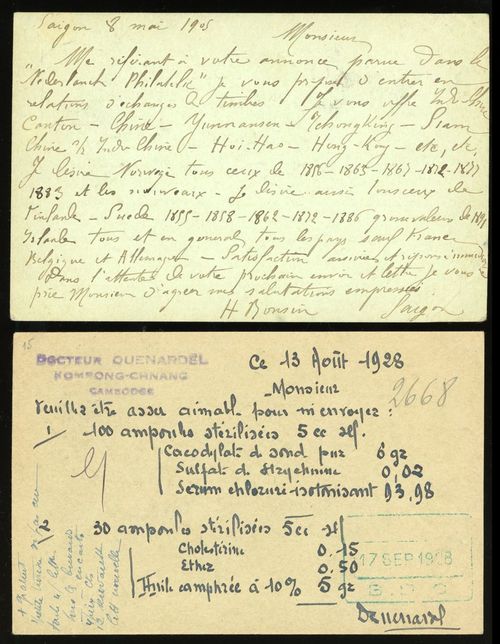 Saigon 8 mai 1905
Monsieur
Me référant à votre annonce parue dans le
"Nederlandsch Philatelie" je vous propose d'entrer en
relations d'échanges de timbres. Je vous offre Indo-Chine
Canton - Chine - Yunnansen - Tchongking - Siam
Chine % Indo Chine - Hoi-Hao - Hong-Kong - etc, etc,
Je désire Norvège tous ceux de 1856-1863-1867-1872-1877
1883 et les nouveaux - Je désire aussi tous ceux de
Finlande - Suède 1855-1858-1862-1872-1886 de
Islande tous et en général tous les pays sauf France
Belgique et Allemagne - Satisfaction assurée et réponse
Dans l'attente de votre prochain envoi et lettre je vous
prie Monsieur d'agréer mes salutations empressées
Saigon
15
DOCTEUR QUENARDEL
KOMPONG-CHNANG
CAMBODGE
Ce 13 Août 1928
Monsieur
2668
Veuillez être assez aimable pour m'envoyer :
1/ 100 ampoules stérilisées 5 cc self.
Cacodylate de soude pur 6 gr
Sulfate de Strychnine 0,02
Serum chloruré isotonisant 93,98
2 30 ampoules stérilisées 5cc self
Cholestérine 0.15
Ether 0.50
Huile camphrée à 10% 5 gr
17 SEP 1928
Quenardel